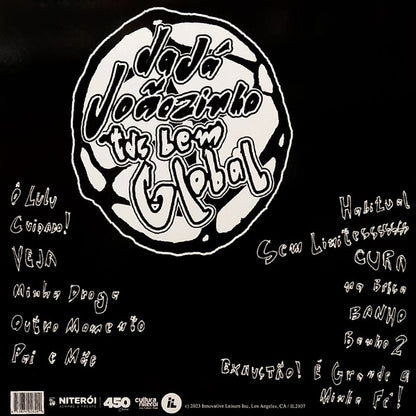 dadá
Joãozinho
tds bem
Global
Ô Lulu
Cuidado!
VEJA
Minha Droga
Outro Momento
Pai e Mãe
Habitual
Sem Limitesssssss
CURA
na Brisa
BANHO
Banho 2
Exaustão! É Grande a
Minha Fé!
NITERÓI
SEMPRE À FRENTE
450
cultura
niterói
iL
c) 2023 Innovative Leisure Inc., Los Angeles, CA / IL2097